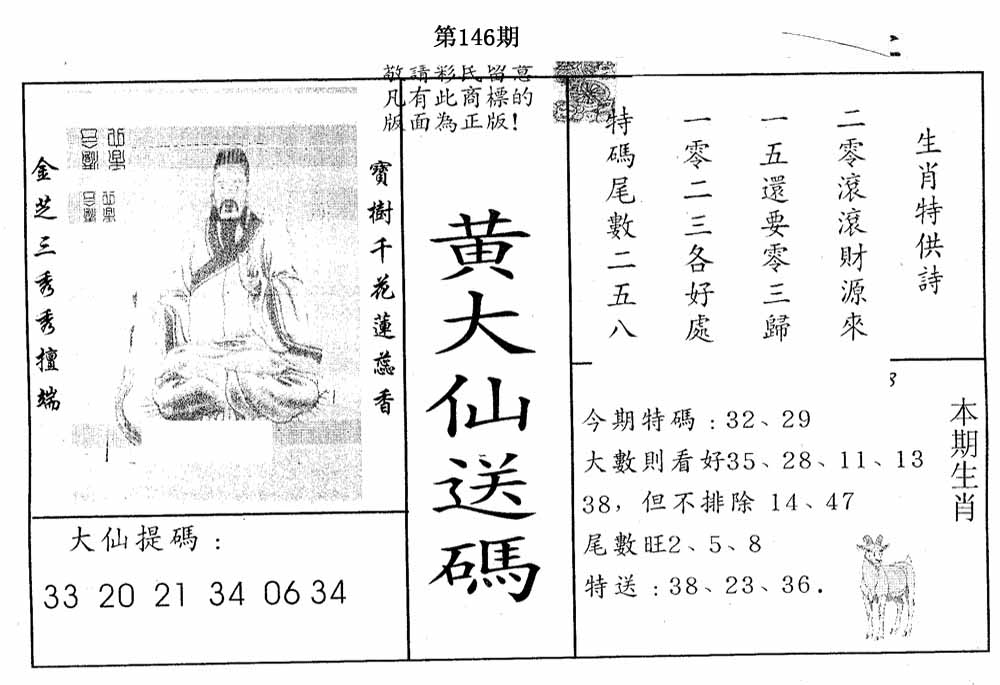 第146期
敬請彩民留意
凡有此商標的
版面為正版!
寶樹千花蓮蕊香
金芝三秀秀擅端
大仙提碼：
33 20 21 34 06 34
黄大仙送碼
生肖特供詩
二零滾滾財源來
一五還要零三歸
一零二三各好處
特碼尾數二五八
本期生肖
今期特碼：32、29
大數則看好35、28、11、13
38，但不排除 14、47
尾數旺2、5、8
特送：38、23、36.